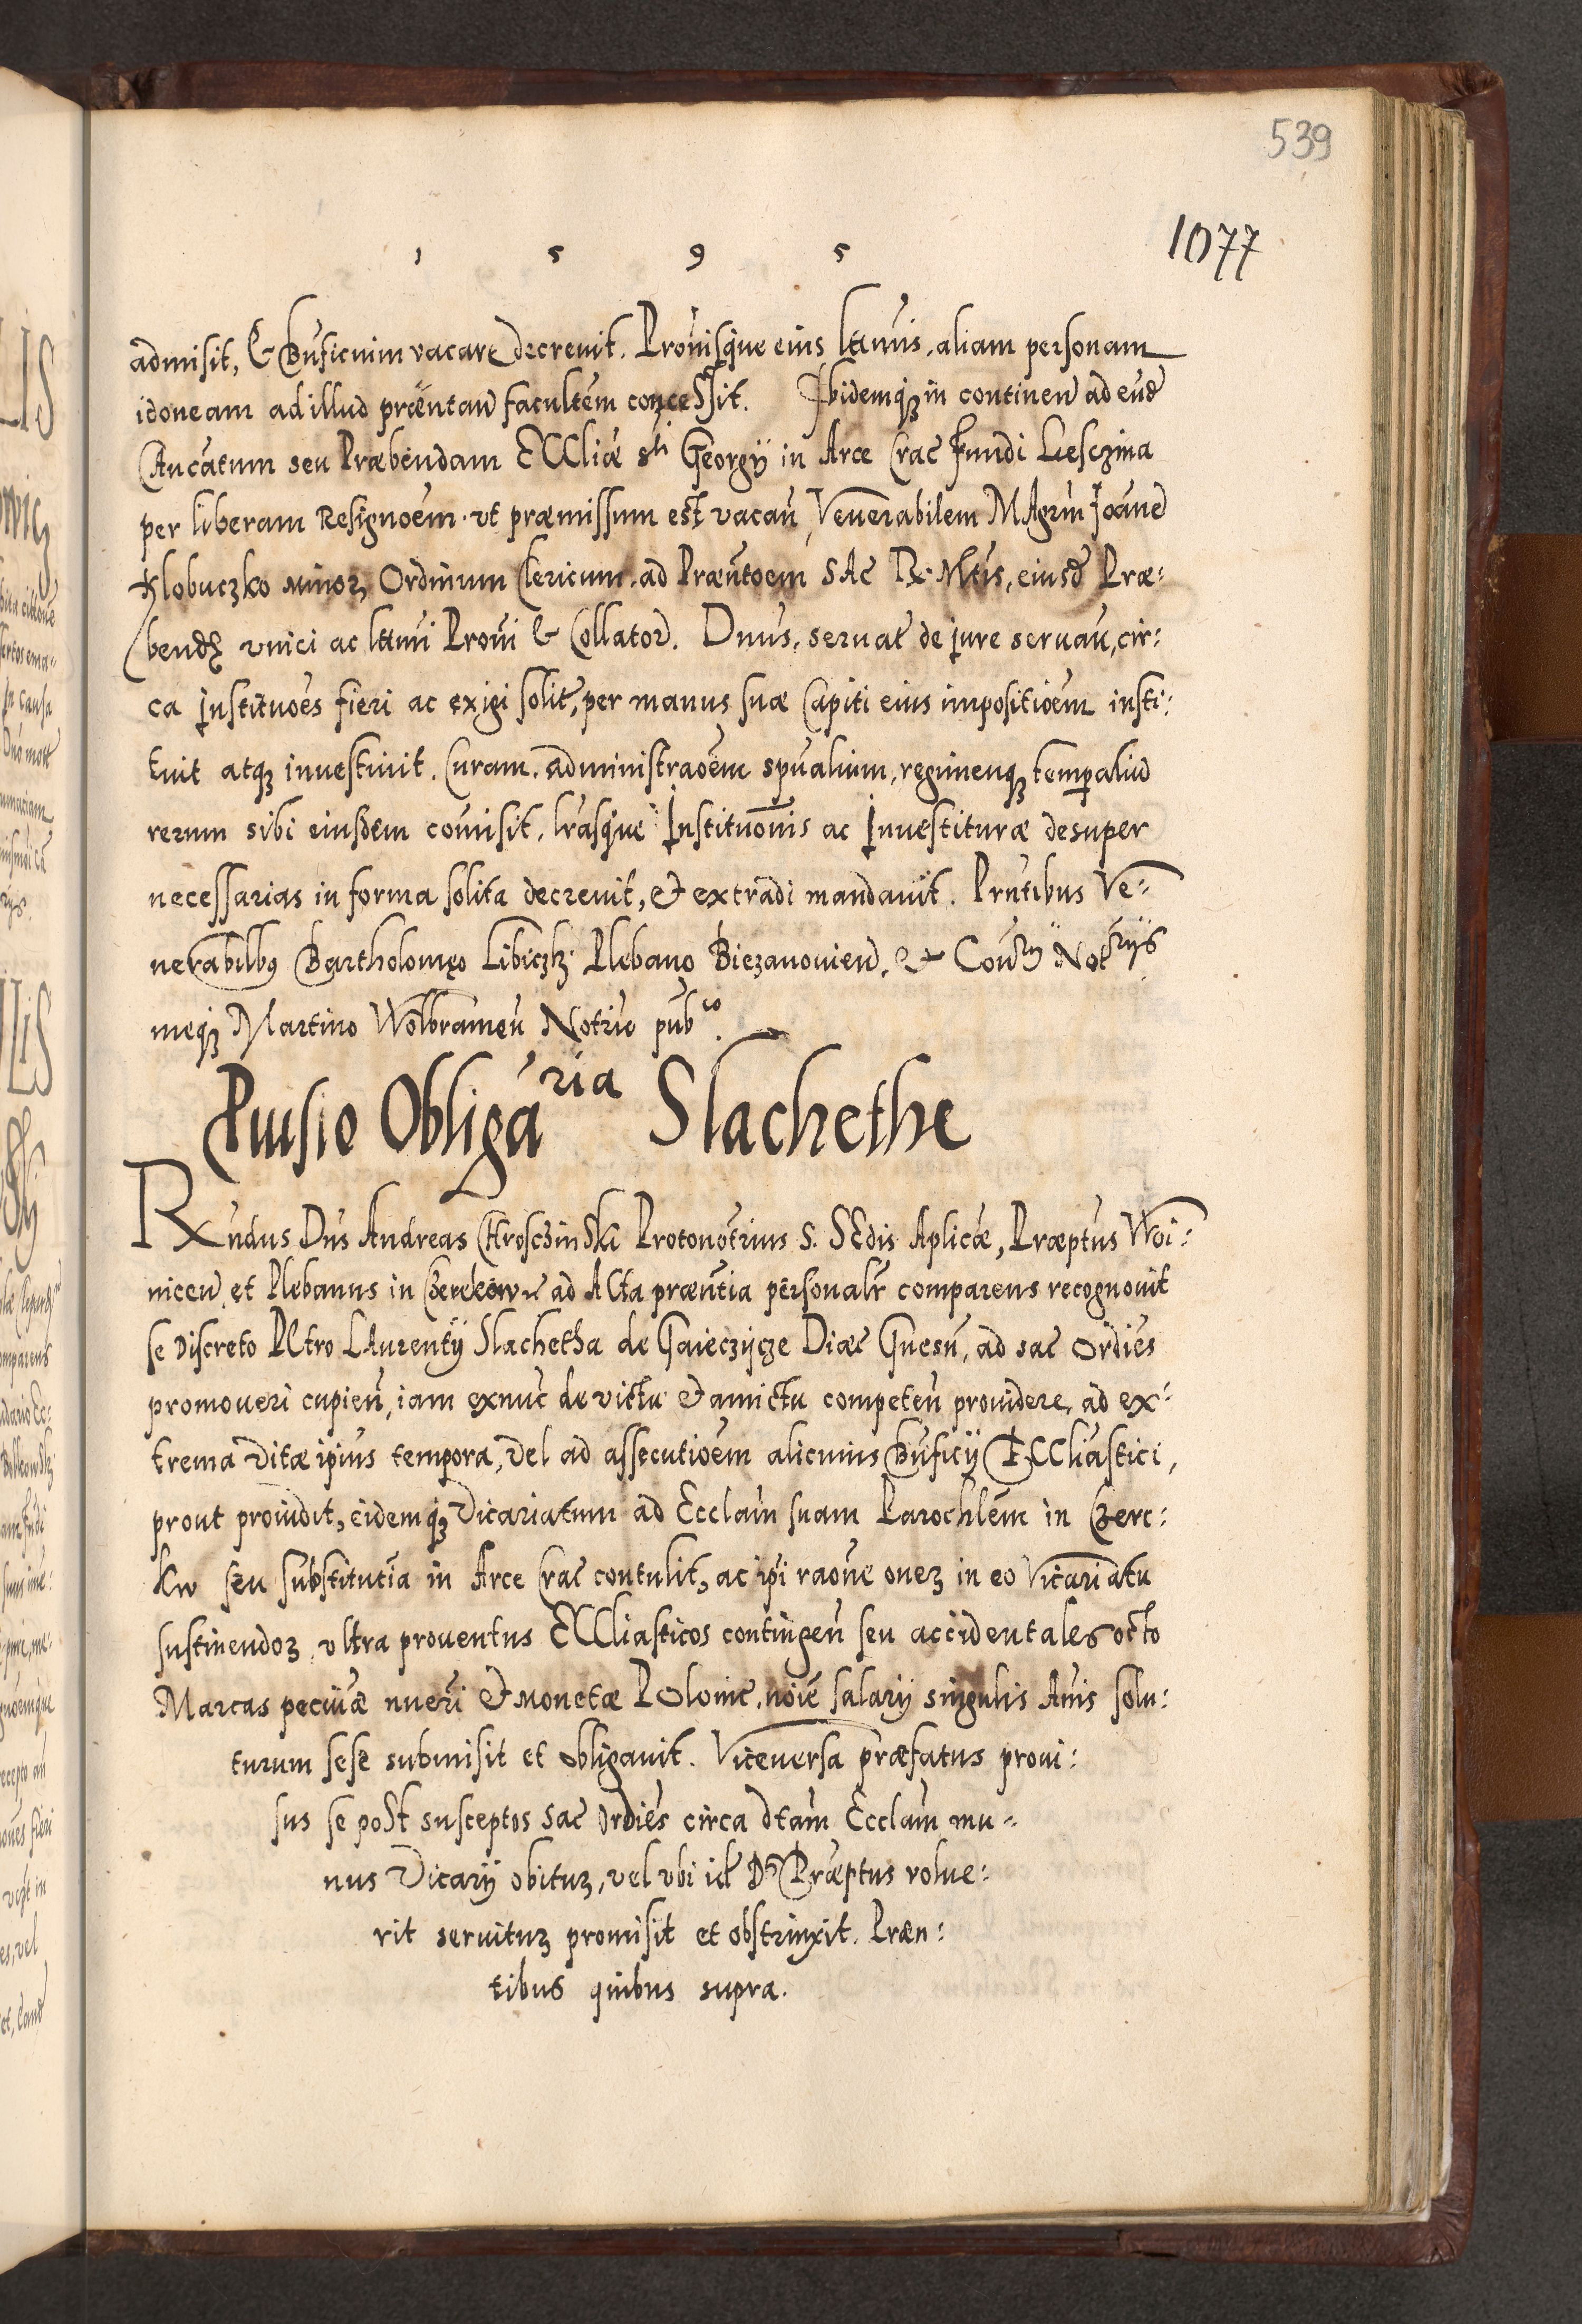 539
1077
1 5 9 5
admisit, & Bnficium vacare decrevit. Provisque eius lttimis, aliam personam
idoneam ad illud præntan facultem concessit. Ibidemq; in continen ad eund
Cantatum seu Præbendam Eccliæ sti Georgij in Arce Crac fundi Lesczina
per liberam Resignoem ut præmissum est vacan, Venerabilem Magrm Joane
Klobuczko minor, Ordinum Clericum, ad Præntoem Sac Rx. Mtis, eiusd Præ:
bendæ unici ac lttimi Provi & Collator. Dnus, servat de jure servan, cir:
ca Institnoes fieri ac exigi solit, per manus suæ Capiti eius impositioem insti:
tuit atq; investivit. Curam, administraoem spualium, regimenq; temporaliu
rerum sibi eiusdem comisit, lrasque Institnonis ac Investituræ desuper
necessarias in forma solita decrevit, et extradi mandavit. Prntibus Ve:
nerabilbq Bartholomeo Libiczk Plebano Biezanovien, et Conrij Notrijs
meq; Martino Wolbramen Notrio pubco.
Provisio Obligaria Slachethe
Rxndus Dns Andreas Chrosczinski Protonotrius S. Sedis Aplicæ, Præptus Woi:
nicen et Plebanus in Czerekow ad Acta præntia personalr comparens recognovit
se Discreto Petro Laurentij Slachetha de Gaieczijcze Diæc Gnesn, ad sac Ordies
promoveri cupien, iam exnuc de victu et amictu competen providere, ad ex:
trema vitæ ipius tempora, vel ad assecutioem alicuius Bnficij Eccliastici,
prout providit, eidemq; Vicariatum ad Ecclam suam Parochlem in Czerc:
kw seu substitutia in Arce Crac contulit, ac ipi raone onez in eo Vicariatu
sustinendoz, ultra proventus Eccliasticos contingen seu accidentales octo
Marcas pecuiæ nueri et Monetæ Polonic, noie salarij singulis Anis solu:
turum sese submisit et obligavit. Viceversa præfatus provi:
sus se post susceptos sac Ordies circa dtam Ecclam mu:
nus Vicarij obituz, vel ubi id Ds Præptus volue:
rit servituz promisit et obstrinxit. Præn:
tibus quibus supra.